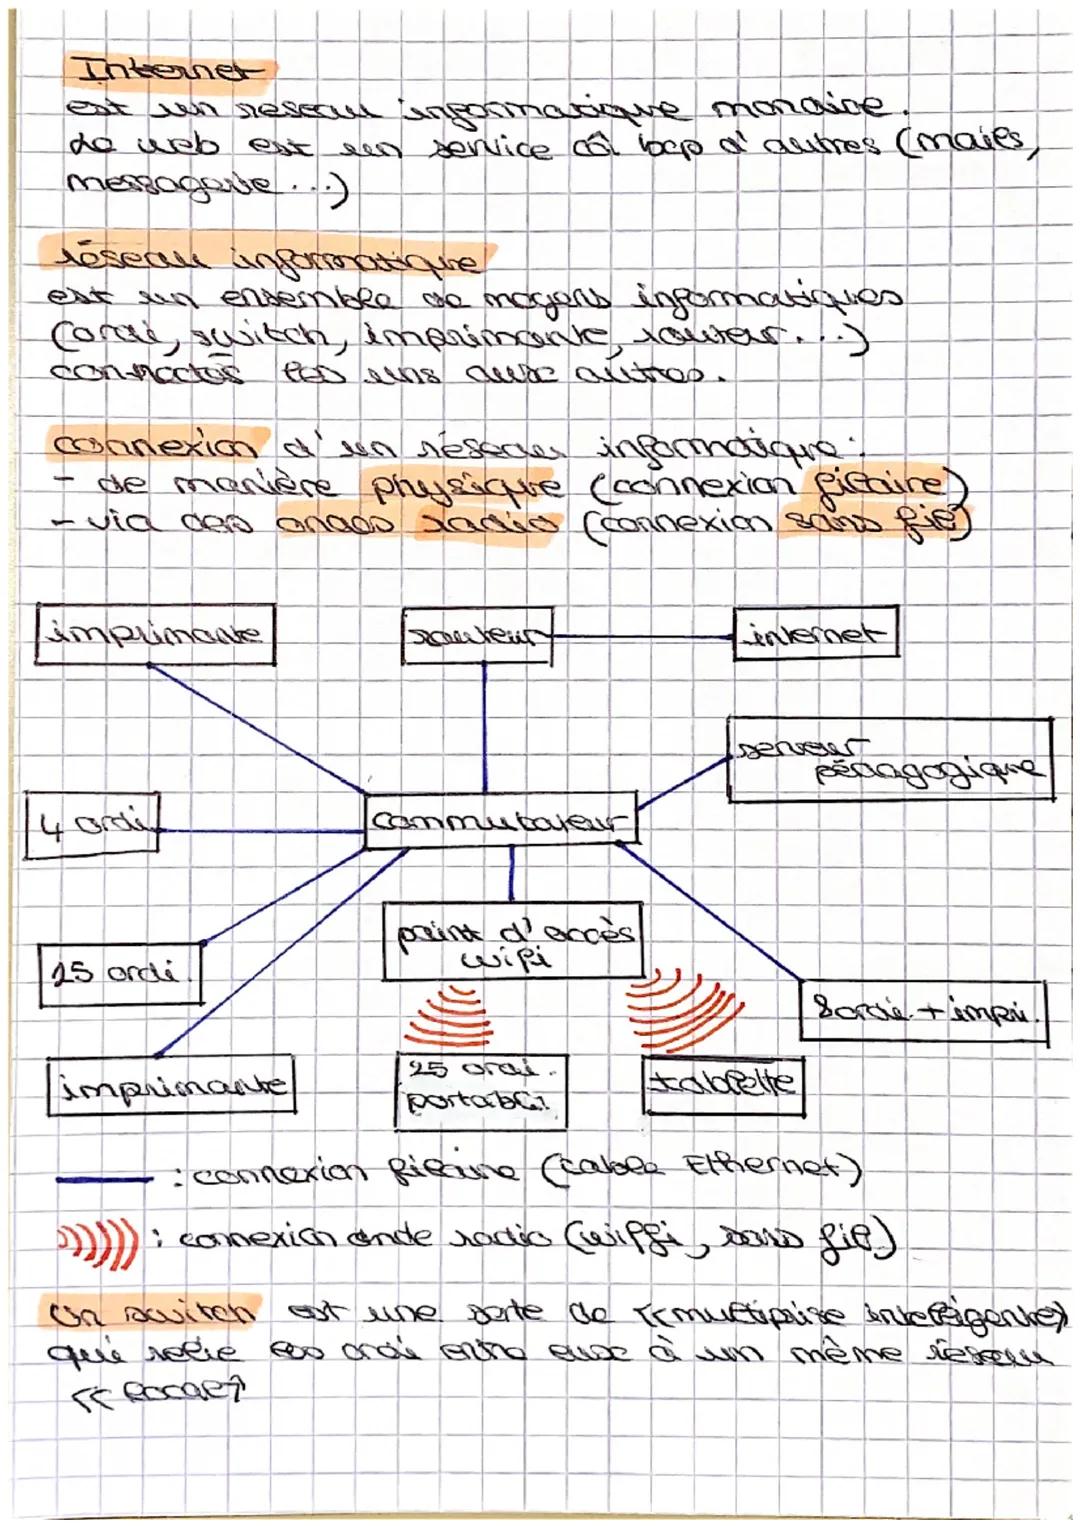 Internet
est un reseau informatique mondiale.
Le web est un service cô bcp d'autres (mails,
messagerie...)
réseau informatique
est un ensemble de moyens informatiques
(ordi, switch, imprimante, routeur...)
connectés les uns aux autres.
connexion d'un réseau informatique:
- de manière physique (connexion filaire)
- via des ondes radio (connexion sans fil)
imprimante
routeur
internet
serveur
pédagogique
4 ordi
commutateur
point d'accès
wifi
25 ordi.
8 ordi. + impri.
imprimante
25 ordi.
portabl
tablette
: connexion filaire (cable Ethernet)
: connexion onde radio (wiffi, sans fil)
Un switch est une sorte de «multiprise intelligente»
qui relie les ordi entre eux à un même réseau
«local»